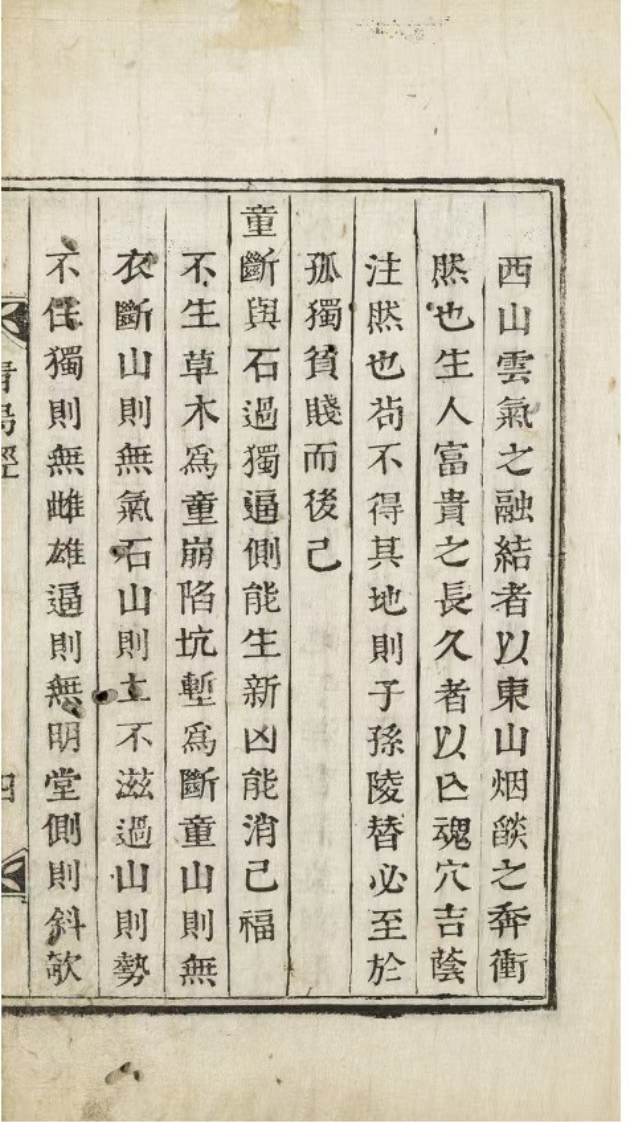 西山雲氣之融結者以東山烟燄之奔衝
然也生人富貴之長久者以亾魂穴吉蔭
注然也茍不得其地則子孫陵替必至於
孤獨貧賤而後己
童斷與石過獨逼側能生新凶能消己福
不生草木爲童崩陷坑塹爲斷童山則無
衣斷山則無氣石山則土不滋過山則勢
不住獨則無雌雄逼則無明堂側則斜欹
青烏經
四